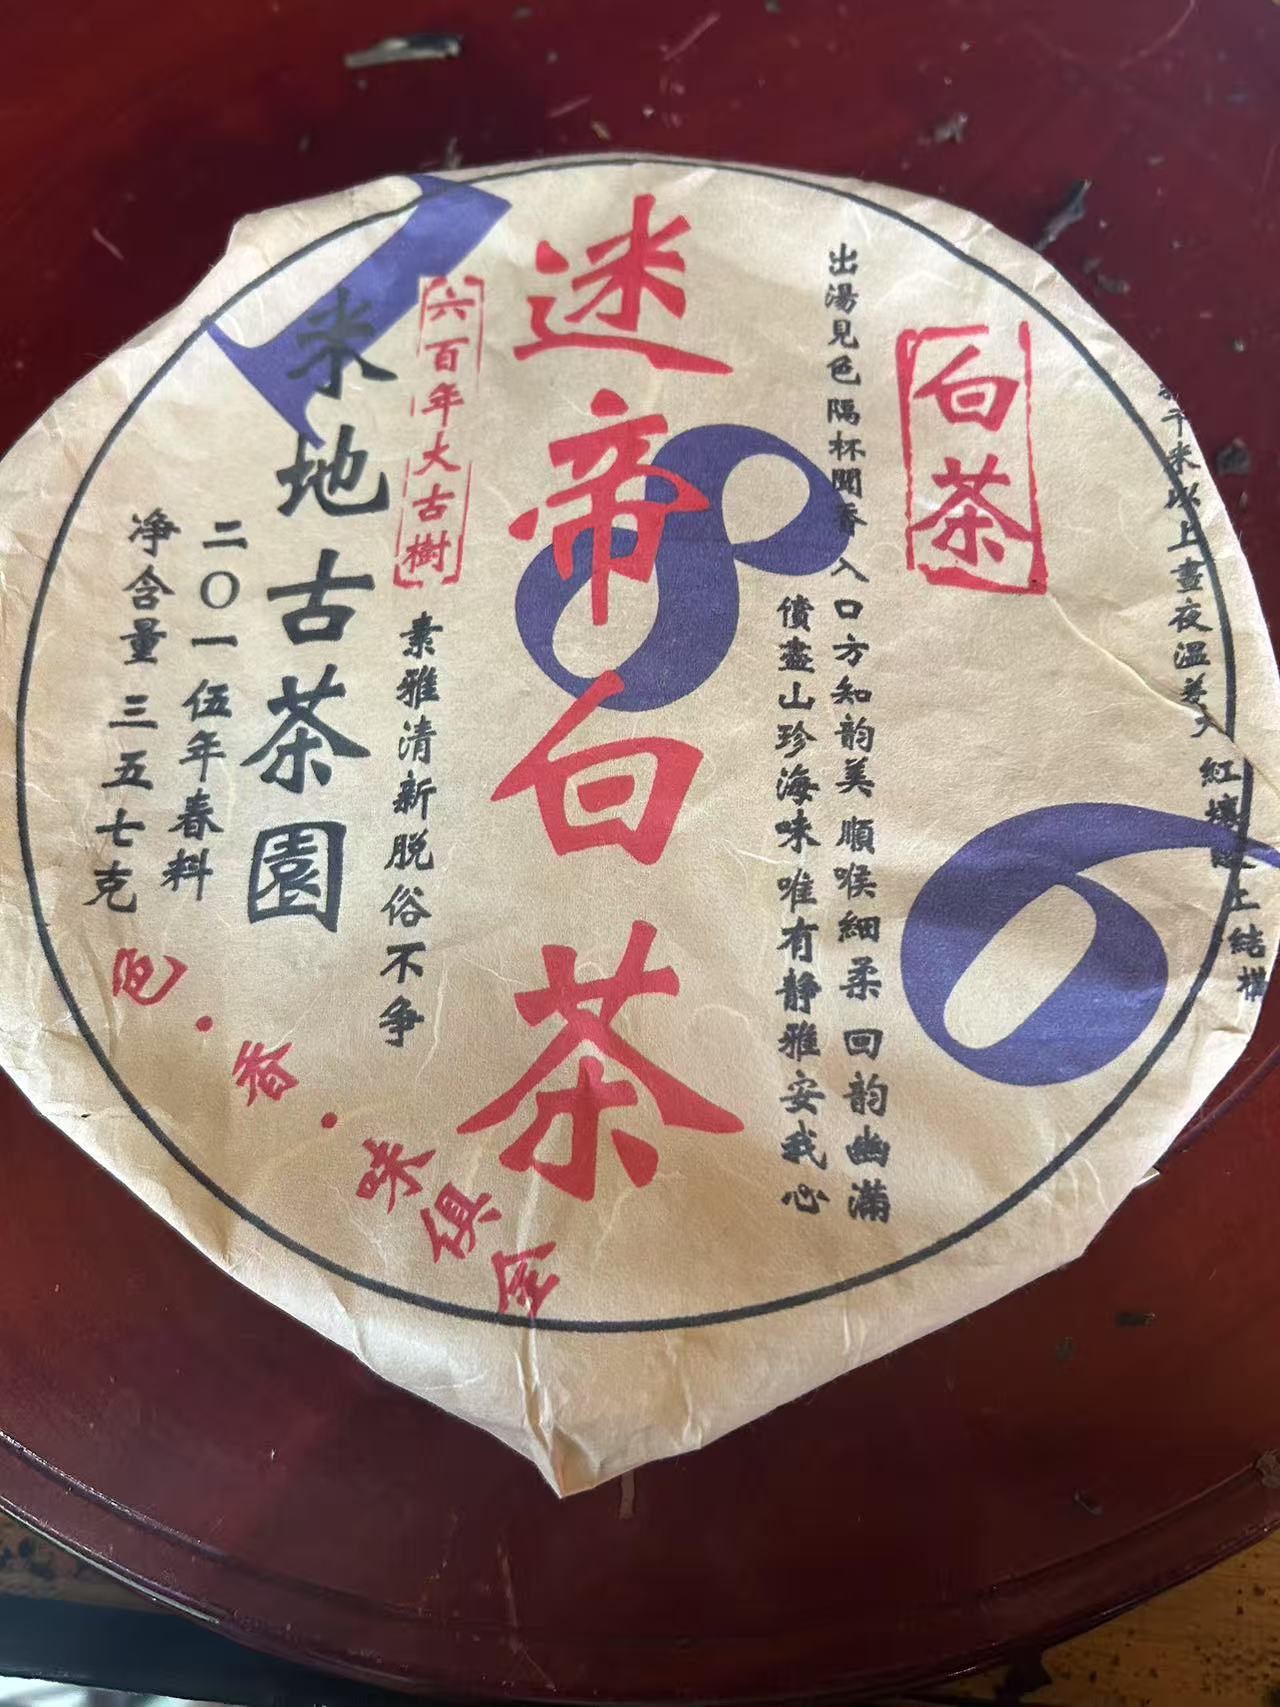 迷帝白茶
白茶
出湯見色 隔杯聞香 入口方知韵美 順喉細柔 回韵幽滿
償盡山珍海味 唯有静雅安我心
干米以上 晝夜溫差大 紅壤 土結構
六百年大古樹
素雅清新脱俗不争
米地古茶園
二〇一伍年春料
净含量三五七克
色·香·味俱全
186